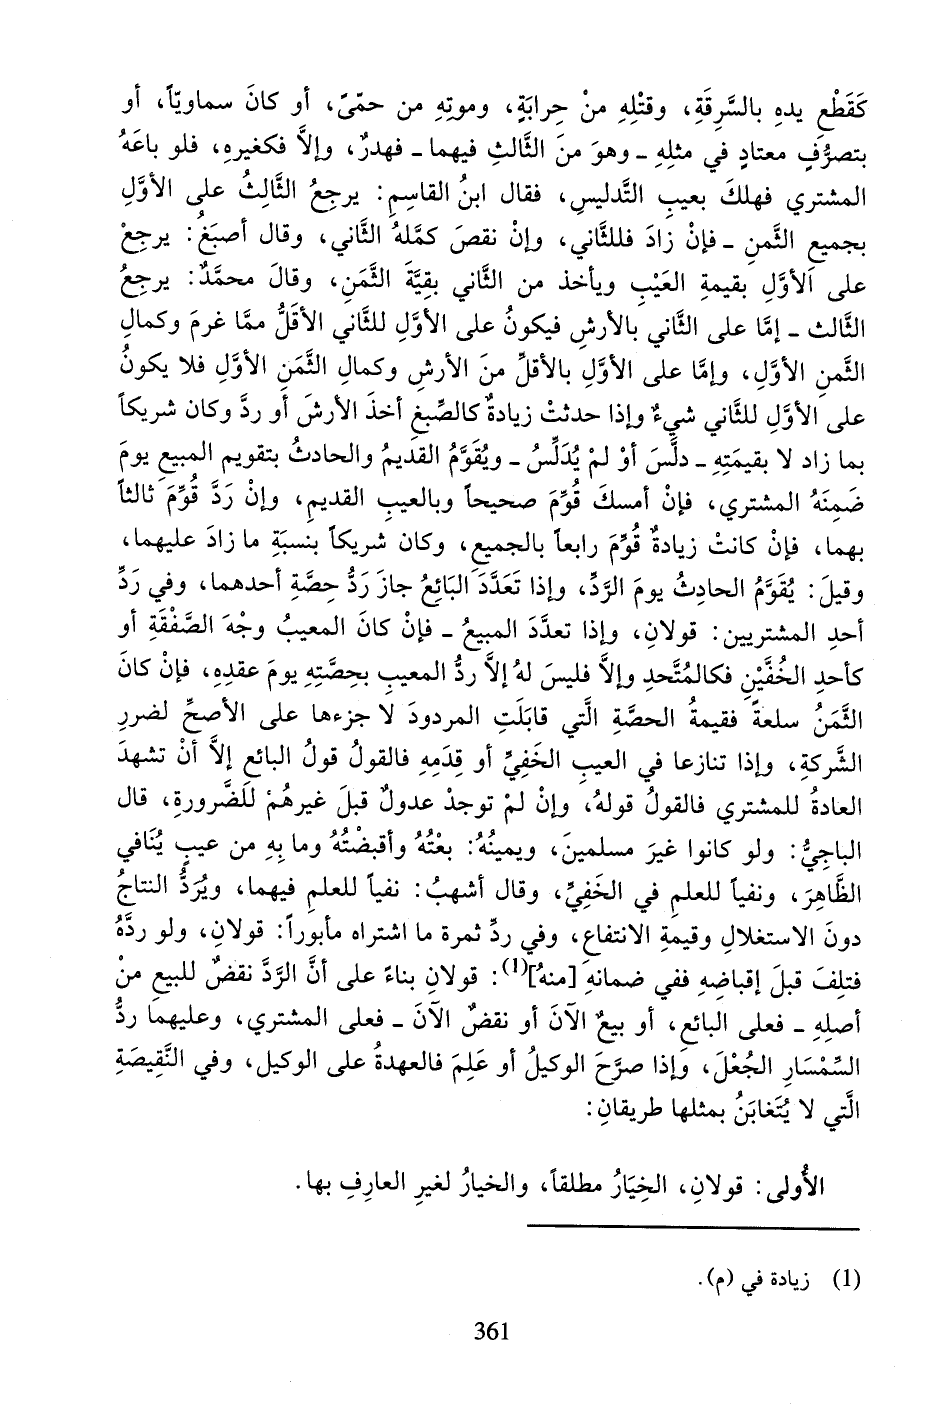 كَقَطْعِ يدهِ بالسَّرِقَةِ، وقتْلِهِ منْ حِرابَةٍ، وموتِهِ من حمّىً، أو كانَ سماويّاً، أو
بتصرُّفٍ معتادٍ في مثلِهِ ـ وهوَ منَ الثَّالثِ فيهما ـ فهدرٌ، وإلاَّ فكغيرِهِ، فلو باعَهُ
المشتري فهلكَ بعيبِ التَّدليسِ، فقال ابنُ القاسِمِ: يرجِعُ الثَّالِثُ على الأوَّلِ
بجميعِ الثَّمنِ ـ فإنْ زادَ فللثَّاني، وإنْ نقصَ كمَّلهُ الثَّاني، وقال أصبَغُ: يرجِعُ
على الأوَّلِ بقيمةِ العَيْبِ ويأخذ من الثَّاني بقِيَّةَ الثَّمَنِ، وقالَ محمَّدٌ: يرجِعُ
الثَّالث ـ إمَّا على الثَّاني بالأرشِ فيكونُ على الأوَّلِ للثَّاني الأقَلُّ ممَّا غرمَ وكمالِ
الثَّمنِ الأوَّلِ، وإمَّا على الأوَّلِ بالأقلِّ منَ الأرشِ وكمالِ الثَّمَنِ الأوَّلِ فلا يكونُ
على الأوَّلِ للثَّاني شيءٌ وإذا حدثتْ زيادةٌ كالصِّبغِ أخذَ الأرشَ أو ردَّ وكان شريكاً
بما زاد لا بقيمَتِهِ ـ دلَّسَ أوْ لمْ يُدَلِّسُ ـ ويُقَوَّمُ القديمُ والحادثُ بتقويمِ المبيعِ يومَ
ضَمِنَهُ المشتري، فإنْ أمسكَ قُوِّمَ صحيحاً وبالعيبِ القديمِ، وإنْ رَدَّ قُوِّمَ ثالثاً
بهما، فإنْ كانتْ زيادةٌ قُوِّمَ رابعاً بالجميعِ، وكان شريكاً بنسبَةِ ما زادَ عليهما،
وقيلَ: يُقَوَّمُ الحادِثُ يومَ الرَّدِّ، وإذا تَعَدَّدَ البَائِعُ جازَ رَدُّ حِصَّةِ أحدهما، وفي رَدِّ
أحدِ المشتريين: قولانِ، وإذا تعدَّدَ المبيعُ ـ فإنْ كانَ المعيبُ وجْهَ الصَّفْقَةِ أو
كأحدِ الخُفَّيْنِ فكالمُتَّحدِ وإلاَّ فليسَ لهُ إلاَّ ردُّ المعيبِ بحِصَّتِهِ يومَ عقدِهِ، فإنْ كانَ
الثَّمَنُ سلعةً فقيمةُ الحصَّةِ الَّتي قابَلَتِ المردودَ لا جزءها على الأصحِّ لضررِ
الشَّركةِ، وإذا تنازعا في العيبِ الخَفِيِّ أو قِدَمِهِ فالقولُ قولُ البائع إلاَّ أنْ تشهدَ
العادةُ للمشتري فالقولُ قولهُ، وإنْ لمْ توجدْ عدولٌ قبلَ غيرهُمْ للضَّرورةِ، قال
الباجِيُّ: ولو كانوا غيرَ مسلمينَ، ويمينُهُ: بعْتُهُ وأقبضْتُهُ وما بِهِ من عيبٍ يُنَافي
الظَّاهِرَ، ونفياً للعلمِ في الخَفِيِّ، وقال أشهبُ: نفياً للعلمِ فيهما، ويُرَدُّ النتاجُ
دونَ الاستغلالِ وقيمةِ الانتفاعِ، وفي ردِّ ثمرة ما اشتراه مأبوراً: قولانِ، ولو ردَّهُ
فتلِفَ قبلَ إقباضِهِ ففي ضمانهِ [منهُ](1): قولانِ بناءً على أنَّ الرَّدَّ نقضٌ للبيعِ منْ
أصلِهِ ـ فعلى البائعِ، أو بيعٌ الآنَ أو نقضٌ الآنَ ـ فعلى المشتري، وعليهما ردُّ
السِّمْسَارِ الجُعْلَ، وإذا صرَّحَ الوكيلُ أو عَلِمَ فالعهدةُ على الوكيل، وفي النَّقِيصَةِ
الَّتي لا يُتَغابَنُ بمثلها طريقانِ:
الأُولى: قولانِ، الخِيَارُ مطلقاً، والخيارُ لغيرِ العارِفِ بها.
(1) زيادة في (م).
361